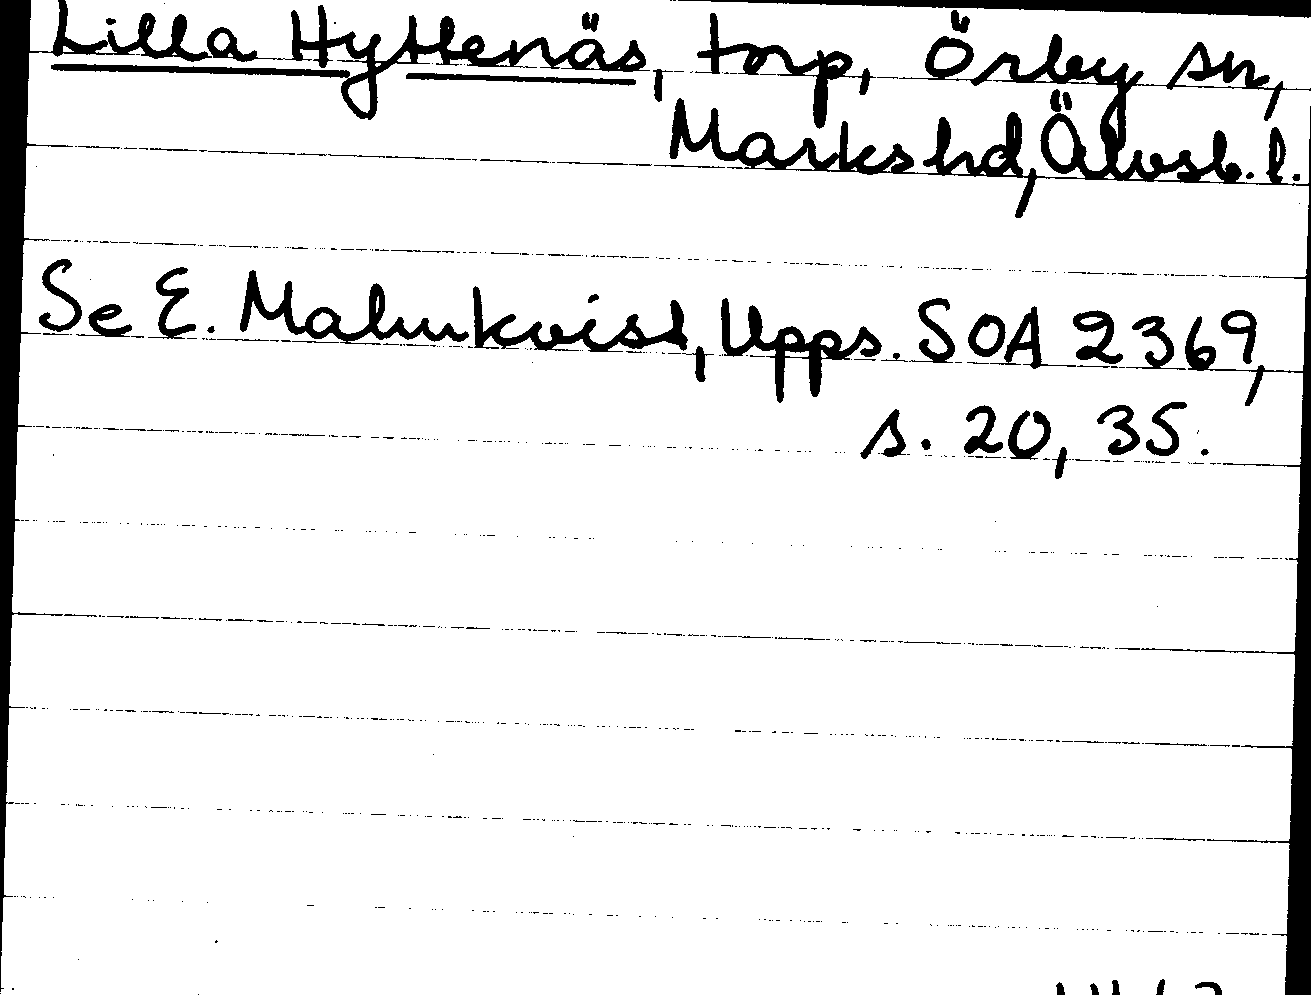 Lilla Hyttenäs, torp, Örby sn,
Marks hd, Älvsb. l.
Se E. Malmkvist, Upps. SOA 2369,
s. 20, 35.